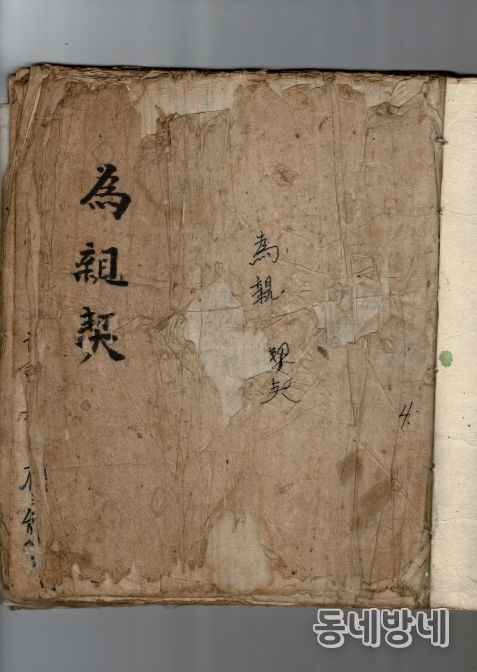 為親契
為親契
4.
동네방네